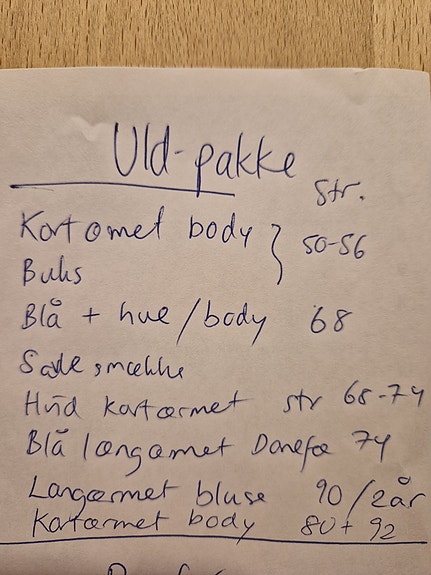 Uld-pakke
Str.
Kortærmet body } 50-56
Buks
Blå + hue / body 68
smække
Hvid kortærmet str 68-74
Blå langærmet Danefæ 74
Langærmet bluse 90 / 2år
Kortærmet body 80 + 92